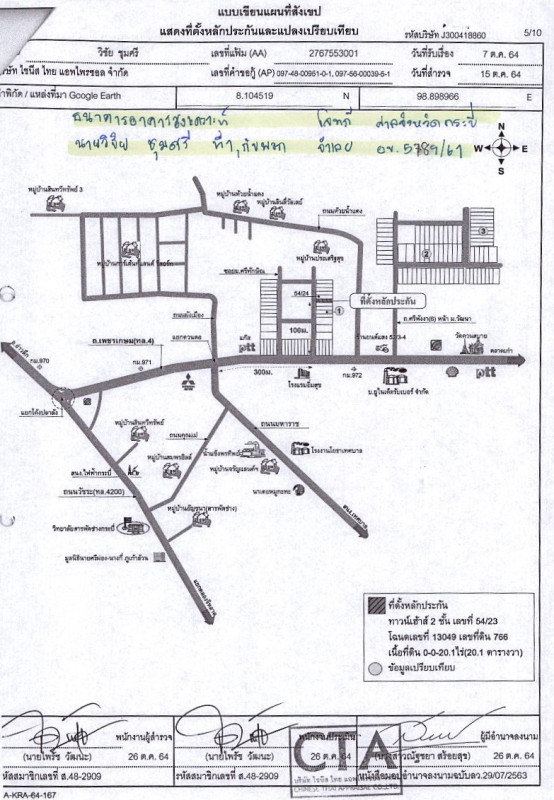 แบบเขียนแผนที่สังเขป
แสดงที่ตั้งหลักประกันและแปลงเปรียบเทียบ
รหัสบริษัท J300418860 5/10
วิชัย ชุมศรี เลขที่แฟ้ม (AA) 2767553001 วันที่รับเรื่อง 7 ต.ค. 64
ษัท ไชนีส ไทย แอพไพรซอล จำกัด เลขที่คำขอกู้ (AP) 097-48-00951-0-1, 097-56-00039-5-1 วันที่สำรวจ 15 ต.ค. 64
าพิกัด / แหล่งที่มา Google Earth 8.104519 N 98.898966 E
ธนาคารอาคารสงเคราะห์ โจทก์ ศาลจังหวัดกระบี่
ที่ 1 จำเลย 5789/61
N
W E
S
หมู่บ้านสินทวีทรัพย์ 3
หมู่บ้านห้วยน้ำแดง
ถนนห้วยน้ำแดง
หมู่บ้านประเสริฐสุข
ซอยม.ศรีทักษิณ
54/24
ที่ตั้งหลักประกัน
1
2
3
100ม.
ถนนผังเมือง
แยกตวนตล
ถ.ศรีพังงา(6) หน้า ม.วัฒนา
วัดถวนสบาย
ตลาดเก่า
ถ.เพชรเกษม(ทล.4)
กม.970
กม.971
กม.972
300ม.
ptt
ptt
MITSUBISHI
โรงแรมอิ่มสุข
บ.ยูไนเต็ดรับเบอร์ จำกัด
แยกโค้งปลาลัง
หมู่บ้านสินทวีทรัพย์
ถนนคุณแม่
ถนนมหาราช
หมู่บ้านสมพรฮิลล์
น้ำแข็งพรทิพย์
หมู่บ้านจรัญแลนด์ฯ
โรงงานโยธาเทศบาล
สนง.ไฟฟ้ากระบี่
ถนนวัชระ(ทล.4200)
นาเตยหมูกะทะ
สนง.เทศบาล
หมู่บ้านธัญชนา(สารพัดช่าง)
วิทยาลัยสารพัดช่างกระบี่
ที่ตั้งหลักประกัน
ทาวน์เฮ้าส์ 2 ชั้น เลขที่ 54/23
โฉนดเลขที่ 13049 เลขที่ดิน 766
เนื้อที่ดิน 0-0-20.1ไร่(20.1 ตารางวา)
ข้อมูลเปรียบเทียบ
พนักงานผู้สำรวจ พนักงานประเมิน ผู้มีอำนาจลงนาม
(นายไพรัช วัฒนะ) 26 ต.ค. 64 (นายไพรัช วัฒนะ) 26 ต.ค. 64 26 ต.ค. 64
หัสสมาชิกเลขที่ ส.48-2909 รหัสสมาชิกเลขที่ ส.48-2909 หนังสือมอบอำนาจลงนามฉบับลว.29/07/2563
CTA
CHINESE THAI APPRAISAL CO.,LTD.
A-KRA-64-167